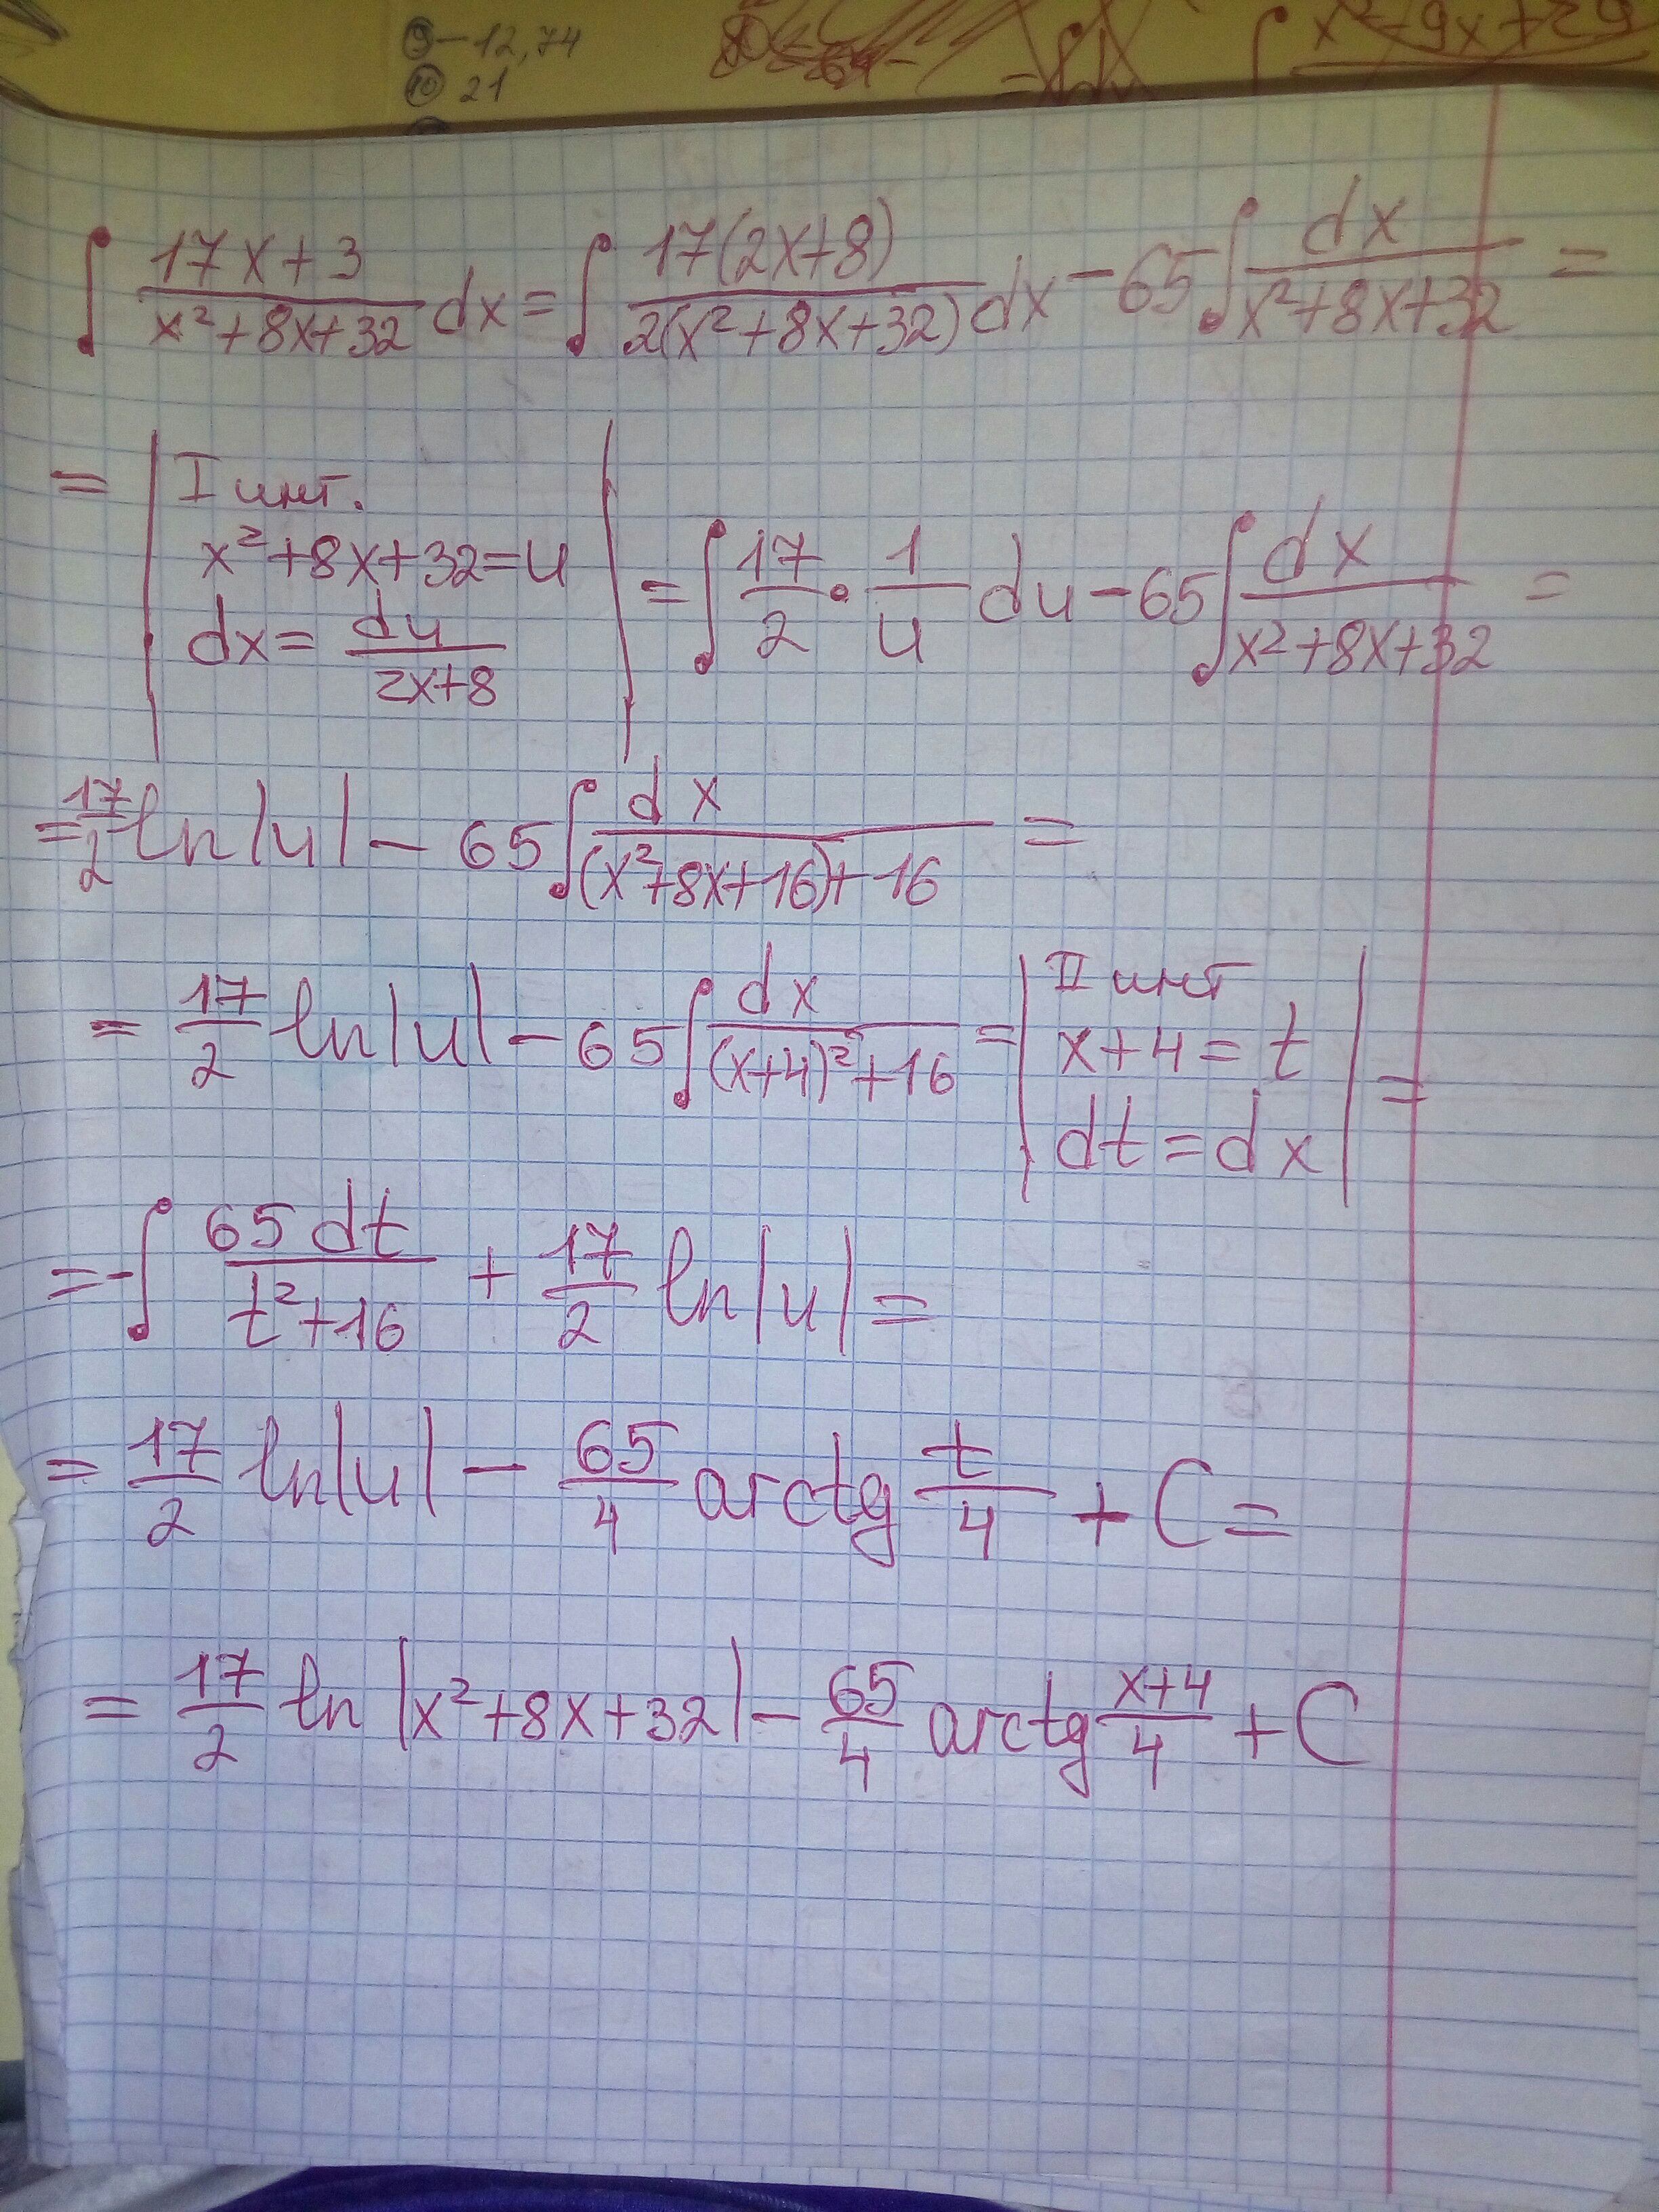 ⑨ – 12,74
⑩ 21
x² – 9x + 29
∫ (17x+3)/(x²+8x+32) dx = ∫ 17(2x+8)/(2(x²+8x+32)) dx – 65 ∫ dx/(x²+8x+32) =
= | I инт. x²+8x+32=u dx = du/(2x+8) | = ∫ 17/2 • 1/u du – 65 ∫ dx/(x²+8x+32) =
= 17/2 ln|u| – 65 ∫ dx/((x²+8x+16)+16) =
= 17/2 ln|u| – 65 ∫ dx/((x+4)²+16) = | II инт x+4 = t dt = dx | =
= – ∫ 65 dt/(t²+16) + 17/2 ln|u| =
= 17/2 ln|u| – 65/4 arctg t/4 + C =
= 17/2 ln|x²+8x+32| – 65/4 arctg (x+4)/4 + C